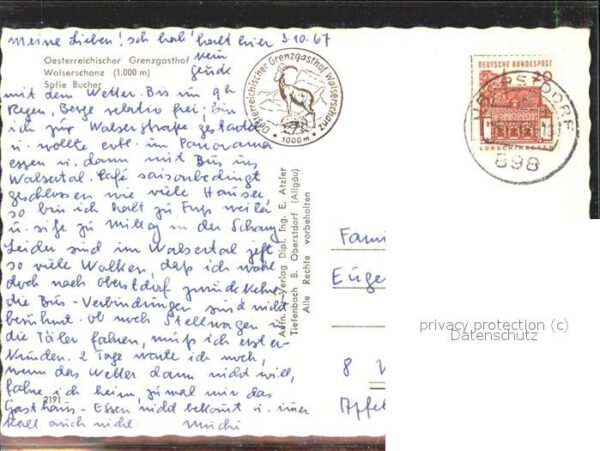 Meine Lieben! Ich hab' halt hier 3.10.67
kein
Oesterreichischer Grenzgasthof
Walserschanz (1.000 m)
Sofie Bucher
mit dem Wetter. Bis um 9h
Regen, Berge relativ frei; bin
ich zur Walserstraße
u. wollte evtl. im Panorama
essen u. dann mit Bus ins
Walsertal. Café saisonbedingt
geschlossen wie viele Häuser
so bin ich halt zu Fuß weiter
u. sitze zu Mittag in der Schanz
Leider sind im Walsertal jetzt
so viele Wolken, daß ich wohl
doch nach Oberstdorf zurückkehre
die Bus-Verbindungen sind nicht
berühmt. Ob noch Stellwagen in
die Täler fahren, muß ich erst er-
kunden. 2 Tage warte ich noch,
wenn das Wetter dann nicht will,
fahre ich heim, zumal mir das
Gasthaus-Essen nicht bekommt u. immer
kalt auch nicht. Muchi
2191
Oesterreichischer Grenzgasthof Walserschanz
1000 m
Aufn. u. Verlag Dipl. Ing. E. Atzler
Tiefenbach B. Oberstdorf (Allgäu)
Alle Rechte vorbehalten
DEUTSCHE BUNDESPOST
20
LORSCH/HESSEN
OBERSTDORF
898
Fami
Euge
8
Apfel
privacy protection (c)
Datenschutz